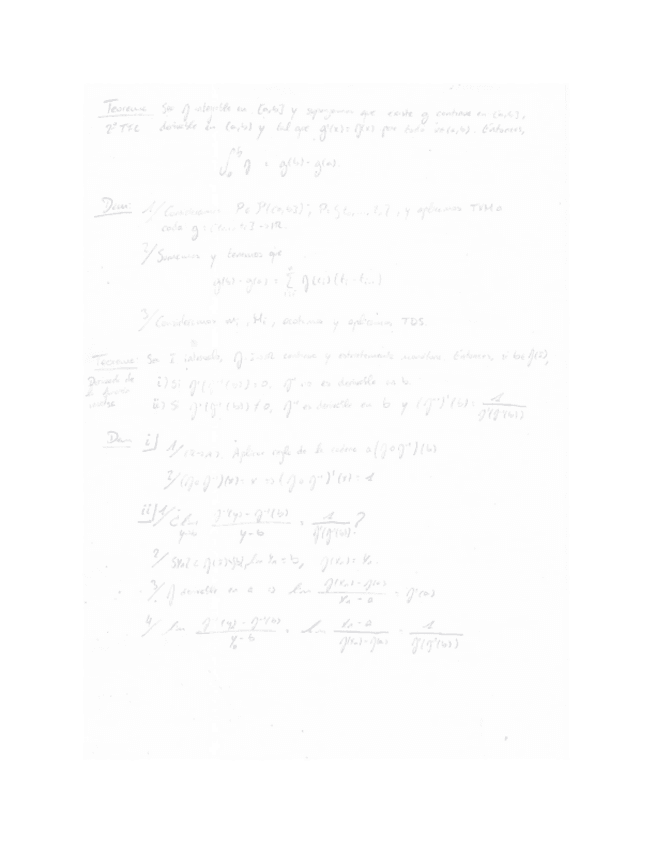 Teorema Sea f integrable en [a,b] y supongamos que existe g continua en [a,b],
2º TFC derivable en (a,b) y tal que g'(x) = f(x) para todo x en (a,b). Entonces,
∫_a^b f = g(b) - g(a).
Dem: 1/ Consideramos P ∈ P([a,b]), P = {t₀,...,tₙ}, y aplicamos TVM a
cada g: [ ] → ℝ.
2/ Sumamos y tenemos que
g(b) - g(a) = Σ f(c_i)(t_i - t_{i-1})
3/ Consideramos m_i, M_i, y aplicamos
Teorema Sea I intervalo, f: I→ℝ continua y estrictamente monótona. Entonces, si b ∈ f(I),
Derivada de i) Si f'(f⁻¹(b)) = 0, f⁻¹ no es derivable en b
la función ii) Si f'(f⁻¹(b)) ≠ 0, f⁻¹ es derivable en b y (f⁻¹)'(b) = 1/f'(f⁻¹(b))
inversa
Dem i) 1/ Aplicar regla de la cadena a (f∘f⁻¹)(b)
2/ (f∘f⁻¹)(x) = x ⇒ (f∘f⁻¹)'(x) = 1
ii) 1/ ¿ lim_{y→b} (f⁻¹(y) - f⁻¹(b))/(y - b) = 1/f'(f⁻¹(b)) ?
2/ lim yₙ = b, f(xₙ) = yₙ.
3/ f derivable en a ⇒ lim (f(xₙ) - f(a))/(xₙ - a) = f'(a)
4/ lim (f⁻¹(yₙ) - f⁻¹(b))/(yₙ - b) = lim (xₙ - a)/(f(xₙ) - f(a)) = 1/f'(f⁻¹(b))